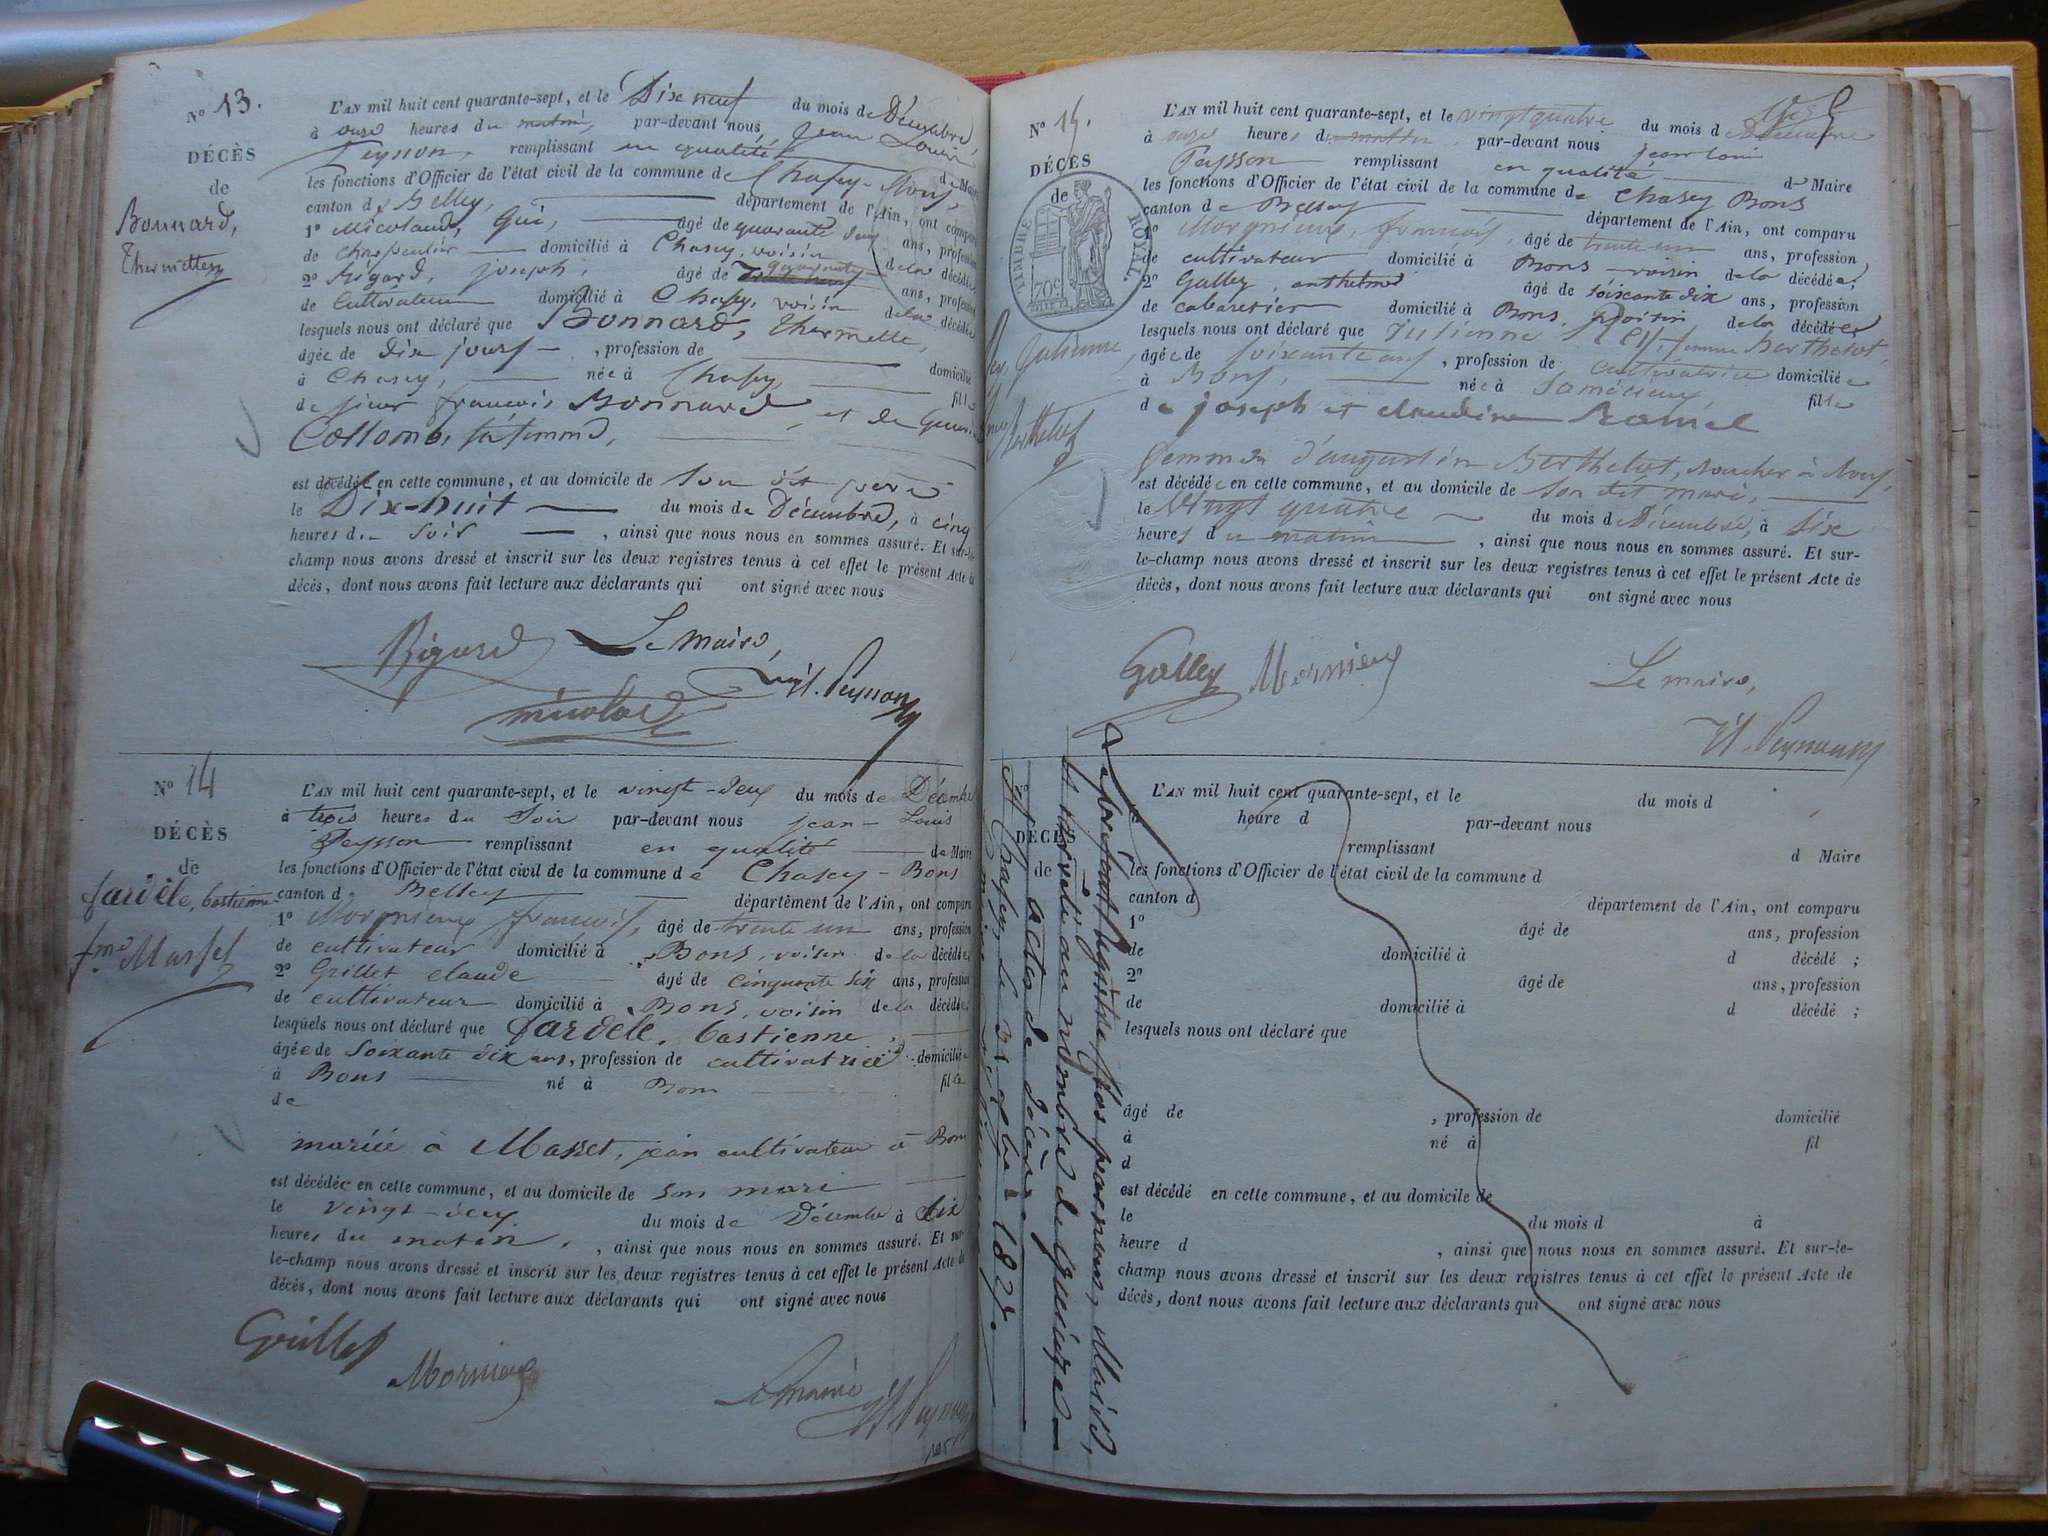 N° 13.
DÉCÈS
de
Bonnard,
L'AN mil huit cent quarante-sept, et le Dix neuf du mois de Décembre,
à onze heures du matin, par-devant nous, Jean Louis
Peysson, remplissant en qualité de Maire
les fonctions d'Officier de l'état civil de la commune de Chasey-Bons,
canton de Belley, département de l'Ain, ont comparu
1° Nicolaud, Gui, âgé de quarante deux ans, profession
de charpentier domicilié à Chasey, voisin de la décédée
2° Rigard, joseph, âgé de quarante ans, profession
de Cultivateur domicilié à Chasey, voisin de la décédée
lesquels nous ont déclaré que Bonnard, Thermette,
âgée de dix jours, profession de domicilié
à Chasey, née à Chasey, fille
de sieur francois Bonnard et de
Collomb, sa femme,
est décédée en cette commune, et au domicile de Son dit pere
le Dix-huit du mois de Décembre, à cinq
heures du Soir, ainsi que nous nous en sommes assuré. Et sur-le-
champ nous avons dressé et inscrit sur les deux registres tenus à cet effet le présent Acte de
décès, dont nous avons fait lecture aux déclarants qui ont signé avec nous
Rigard Le Maire,
Peysson
N° 14
DÉCÈS
de
fardèle, bastienne
fme Masset
L'AN mil huit cent quarante-sept, et le vingt-deux du mois de Décembre
à trois heures du Soir par-devant nous jean-Louis
Peysson remplissant en qualité de Maire
les fonctions d'Officier de l'état civil de la commune de Chasey-Bons
canton de Belley département de l'Ain, ont comparu
1° Morgnieux, francois, âgé de trente un ans, profession
de cultivateur domicilié à Bons, voisin de la décédée
2° Grillet claude âgé de cinquante six ans, profession
de cultivateur domicilié à Bons, voisin de la décédée
lesquels nous ont déclaré que fardele, bastienne,
âgée de Soixante dix ans, profession de cultivatrice domiciliée
à Bons né à Bons fille
de
mariée à Masset, jean cultivateur à Bons
est décédée en cette commune, et au domicile de son mari
le vingt-deux du mois de Décembre à Six
heures du matin, ainsi que nous nous en sommes assuré. Et sur-
le-champ nous avons dressé et inscrit sur les deux registres tenus à cet effet le présent Acte de
décès, dont nous avons fait lecture aux déclarants qui ont signé avec nous
Grillet
Mornieux
Le maire
N° 15.
DÉCÈS
de
TIMBRE ROYAL
70c
Julienne,
Berthelot
L'AN mil huit cent quarante-sept, et le vingt quatre du mois de Décembre
à onze heures du matin, par-devant nous jean louis
Peysson remplissant en qualité de Maire
les fonctions d'Officier de l'état civil de la commune de Chasey Bons
canton de Belley département de l'Ain, ont comparu
1° Morgnieux, francois, âgé de trente un ans, profession
de cultivateur domicilié à Bons voisin de la décédée;
2° Galley, anthelme âgé de soixante dix ans, profession
de cabaretier domicilié à Bons, voisin de la décédée
lesquels nous ont déclaré que Julienne femme Berthelot,
âgée de soixante ans, profession de cultivatrice domiciliée
à Bons, née à fille
de joseph et claudine
femme d'augustin Berthelot, à Bons,
est décédée en cette commune, et au domicile de Son dit mari,
le vingt quatre du mois de Décembre, à Six
heures du matin, ainsi que nous nous en sommes assuré. Et sur-
le-champ nous avons dressé et inscrit sur les deux registres tenus à cet effet le présent Acte de
décès, dont nous avons fait lecture aux déclarants qui ont signé avec nous
Galley Mornieux Le maire,
DÉCÈS
de
L'AN mil huit cent quarante-sept, et le du mois d
heure d par-devant nous
remplissant d Maire
les fonctions d'Officier de l'état civil de la commune d
canton d département de l'Ain, ont comparu
1° âgé de ans, profession
de domicilié à d décédé ;
2° âgé de ans, profession
de domicilié à d décédé ;
lesquels nous ont déclaré que
âgé de , profession de domicilié
à né à fil
d
est décédé en cette commune, et au domicile de
le du mois d à
heure d , ainsi que nous nous en sommes assuré. Et sur-le-
champ nous avons dressé et inscrit sur les deux registres tenus à cet effet le présent Acte de
décès, dont nous avons fait lecture aux déclarants qui ont signé avec nous
Le présent Registre, Clos par nous, Maire,
et arrêté au nombre de quinze
actes de décès
A Chasey, le